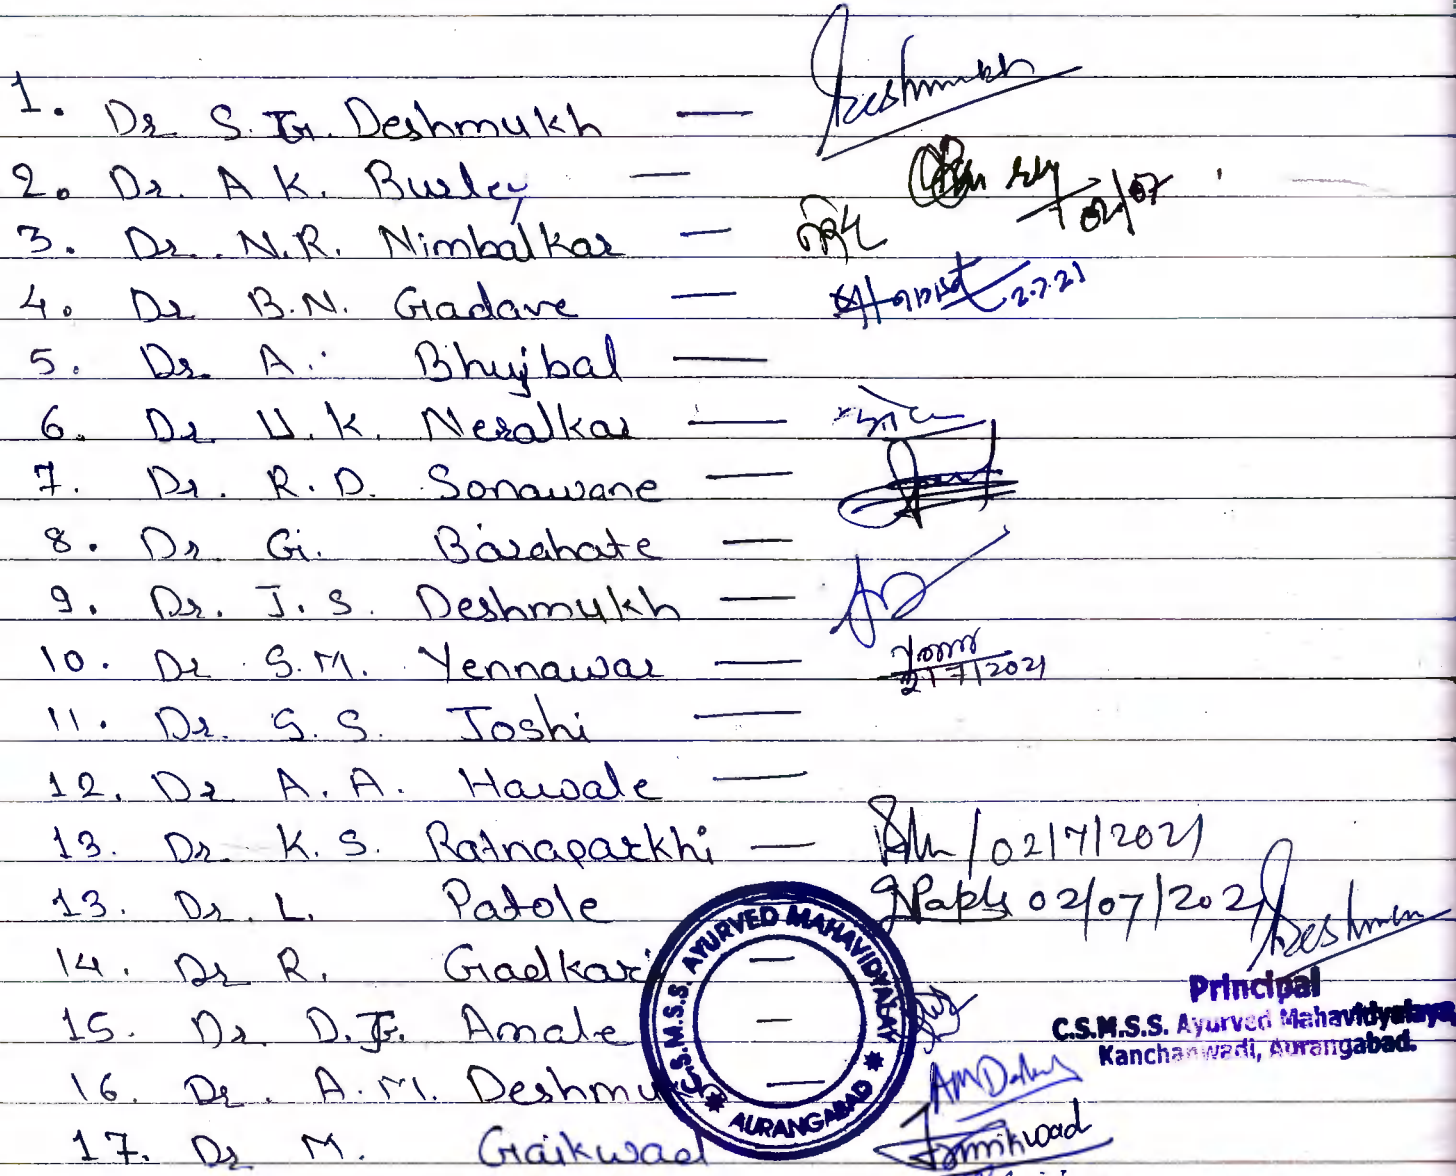 1. Dr S. G. Deshmukh — Deshmukh
2. Dr. A K. Burley — 02/07
3. Dr. N.R. Nimbalkar —
4. Dr B.N. Gadave — 2.7.21
5. Dr. A. Bhujbal —
6. Dr U. K. Neralkar —
7. Dr. R. D. Sonawane —
8. Dr G. Barahate —
9. Dr. J. S. Deshmukh —
10. Dr S. M. Yennawar — 2/7/2021
11. Dr. S. S. Joshi —
12. Dr A. A. Hawale —
13. Dr K. S. Ratnaparkhi — /02/7/2021
13. Dr. L. Patole 02/07/2021
14. Dr R. Gadkari —
15. Dr D. G. Amale —
16. Dr. A. M. Deshmu —
17. Dr M. Gaikwad
C.S.M.S.S. AYURVED MAHAVIDYALAY
AURANGABAD
Deshmukh
Principal
C.S.M.S.S. Ayurved Mahavidyalaya,
Kanchanwadi, Aurangabad.